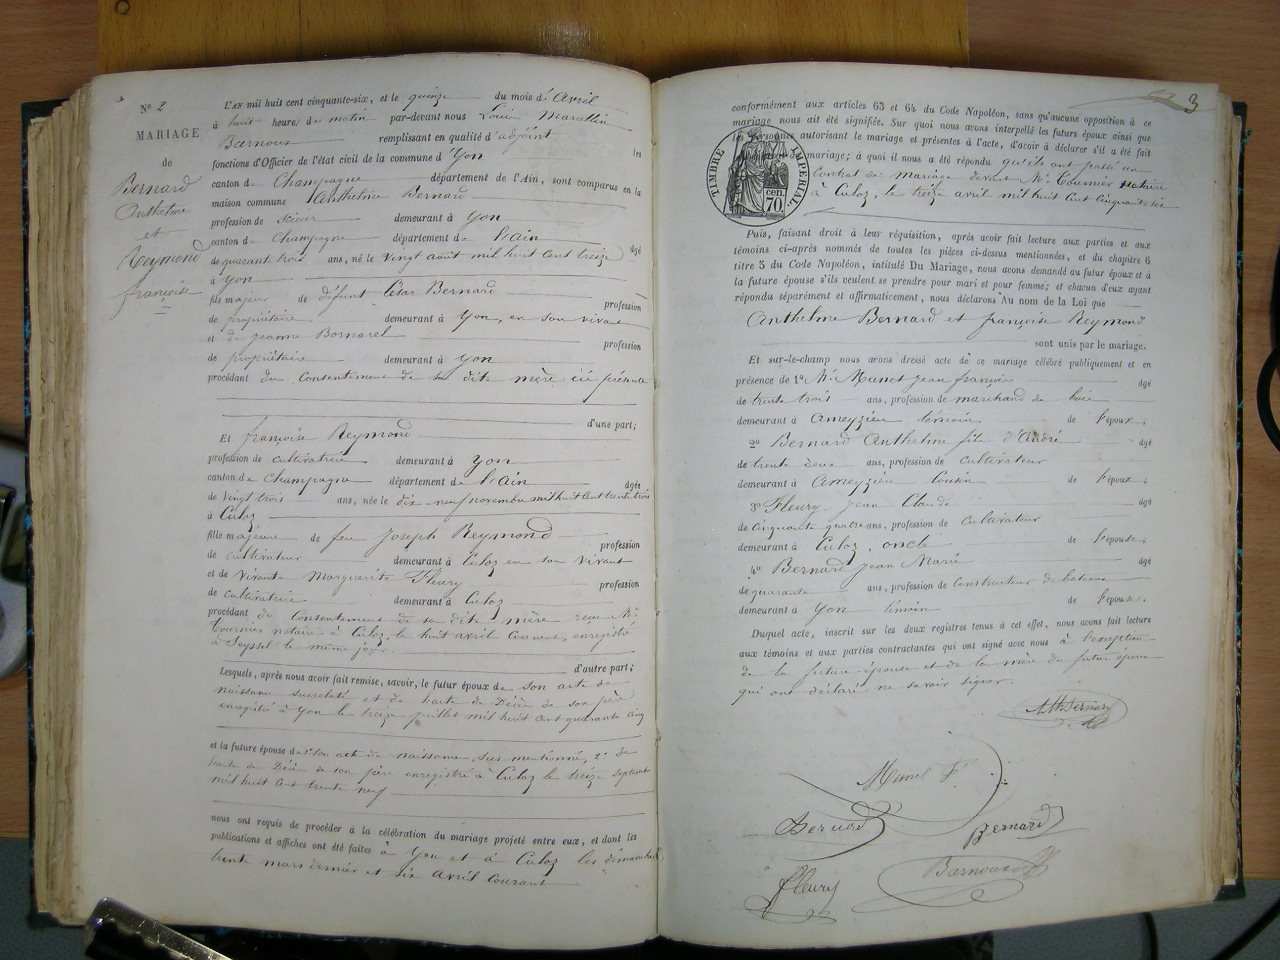 N° 2
MARIAGE
de
Bernard
Anthelme
et
Reymond
françoise
L'AN mil huit cent cinquante-six, et le quinze du mois d'Avril
à huit heures du matin par-devant nous Louis Marcellin
Barnoux remplissant en qualité d'adjoint les
fonctions d'Officier de l'état civil de la commune d'Yon
canton de Champagne département de l'Ain, sont comparus en la
maison commune Anthelme Bernard
profession de scieur demeurant à Yon
canton de Champagne département de l'ain âgé
de quarante trois ans, né le Vingt août mil huit cent treize
à Yon
fils majeur de défunt César Bernard profession
de propriétaire demeurant à Yon, en son vivant
et de jeanne Bornarel profession
de propriétaire demeurant à Yon
procédant du Consentement de sa dite mère ici présente
d'une part;
Et françoise Reymond
profession de cultivatrice demeurant à Yon
canton de Champagne département de l'ain âgée
de vingt trois ans, née le dix neuf novembre mil huit cent trente trois
à Culoz
fille majeure de feu Joseph Reymond profession
de cultivateur demeurant à Culoz en son vivant
et de vivante Marguerite Fleury profession
de cultivatrice demeurant à Culoz
procédant du Consentement de sa dite mère reçu Me
Tournier notaire à Culoz, le huit avril Courant, enregistré
à Seyssel le même jour.
d'autre part;
Lesquels, après nous avoir fait remise, savoir, le futur époux de son acte de
naissance susrelaté et de l'acte de Décès de son père
enregistré à Yon le treize juillet mil huit cent quarante cinq
et la future épouse de 1° son acte de naissance sus mentionné, 2° de
l'acte de Décès de son père enregistré à Culoz le treize septembre
mil huit cent trente neuf
nous ont requis de procéder à la célébration du mariage projeté entre eux, et dont les
publications et affiches ont été faites à Yon et à Culoz les dimanches
trente mars dernier et six avril Courant
3
conformément aux articles 63 et 64 du Code Napoléon, sans qu'aucune opposition à ce
mariage nous ait été signifiée. Sur quoi nous avons interpellé les futurs époux ainsi que
les personnes autorisant le mariage et présentes à l'acte, d'avoir à déclarer s'il a été fait
de mariage; à quoi il nous a été répondu qu'ils ont passé un
Contrat de mariage devant Me Tournier notaire
à Culoz, le treize avril mil huit cent cinquante six
TIMBRE IMPÉRIAL
70 cen.
Puis, faisant droit à leur réquisition, après avoir fait lecture aux parties et aux
témoins ci-après nommés de toutes les pièces ci-dessus mentionnées, et du chapitre 6
titre 5 du Code Napoléon, intitulé Du Mariage, nous avons demandé au futur époux et à
la future épouse s'ils veulent se prendre pour mari et pour femme; et chacun d'eux ayant
répondu séparément et affirmativement, nous déclarons Au nom de la Loi que
Anthelme Bernard et françoise Reymond
sont unis par le mariage.
Et sur-le-champ nous avons dressé acte de ce mariage célébré publiquement et en
présence de 1° Mr Munet jean françois âgé
de trente trois ans, profession de marchand de bois
demeurant à Ameyzieu témoin de l'époux.
2° Bernard Anthelme fils d'André âgé
de trente deux ans, profession de cultivateur
demeurant à Ameyzieu Cousin de l'époux.
3° Fleury Jean Claude âgé
de cinquante quatre ans, profession de cultivateur
demeurant à Culoz, oncle de l'épouse.
4° Bernard Jean Marie âgé
de quarante ans, profession de Constructeur de bateau
demeurant à Yon témoin de l'épouse.
Duquel acte, inscrit sur les deux registres tenus à cet effet, nous avons fait lecture
aux témoins et aux parties contractantes qui ont signé avec nous à l'exception
de la future épouse et de la mère du futur époux
qui ont déclaré ne savoir signer.
Ath Bernard
Munet F
Bernard
Bernard
Fleury
Barnoux